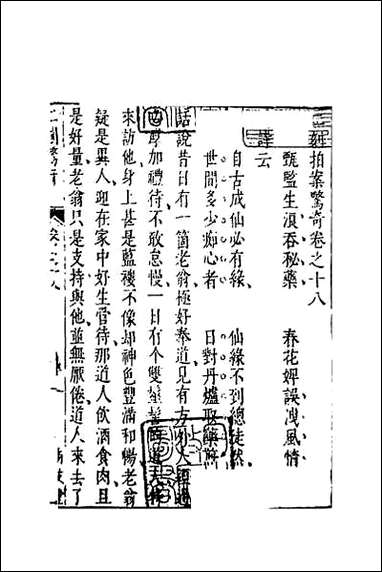 拍案驚奇卷之十八
甄監生浪吞秘藥 春花婢誤洩風情
詩云
自古成仙必有緣 仙緣不到總徒然
世間多少痴心者 日對丹爐取藥煎
話說昔日有一箇老翁極好奉道見有方外人經過
厚加禮待不敢怠慢一日有个雙髻道人特
來訪他身上甚是藍褸不像却神色豐滿和暢老翁
疑是異人迎在家中好生管待那道人飲酒食肉且
是好量老翁只是支持與他並無厭倦道人來去了